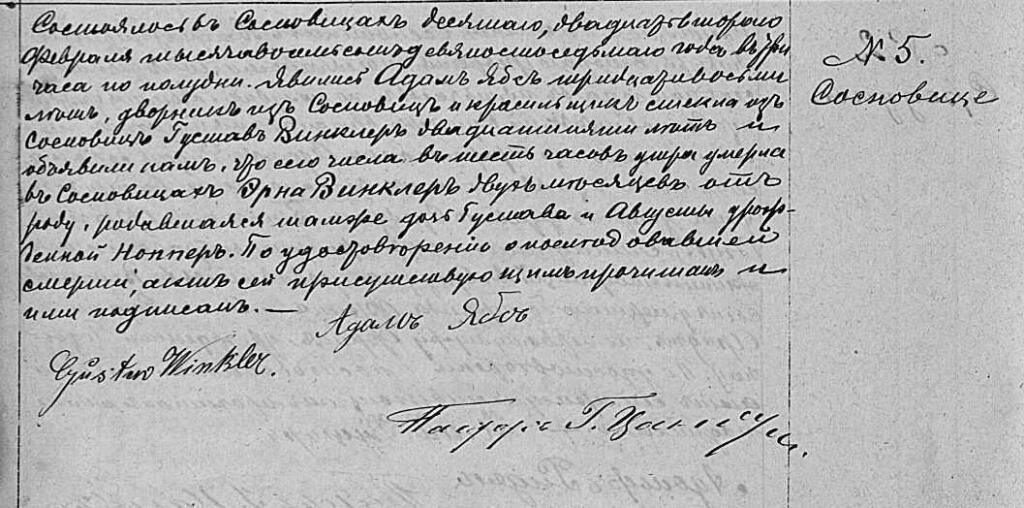 Состоялось въ Сосновицахъ десятаго, двадцать втораго
Февраля тысяча восемьсотъ девяностоседьмаго года въ три
часа по полудни. Явились Адамъ Ябсъ тридцати восьми
лѣтъ, дворникъ изъ Сосновицъ и красильщикъ стекла изъ
Сосновицъ Густавъ Винклеръ двадцати пяти лѣтъ и
объявили намъ, что сего числа въ шесть часовъ утра умерла
въ Сосновицахъ Эрна Винклеръ двухъ мѣсяцевъ отъ
роду, родившаяся тамже дочь Густава и Августы урож-
денной Нопперъ. По удостовѣренію о послѣдовавшей
смерти, актъ сей присутствующимъ прочитанъ и
ими подписанъ. —
Адамъ Ябсъ
Gustav Winkler.
Пасторъ Г.
№ 5.
Сосновице